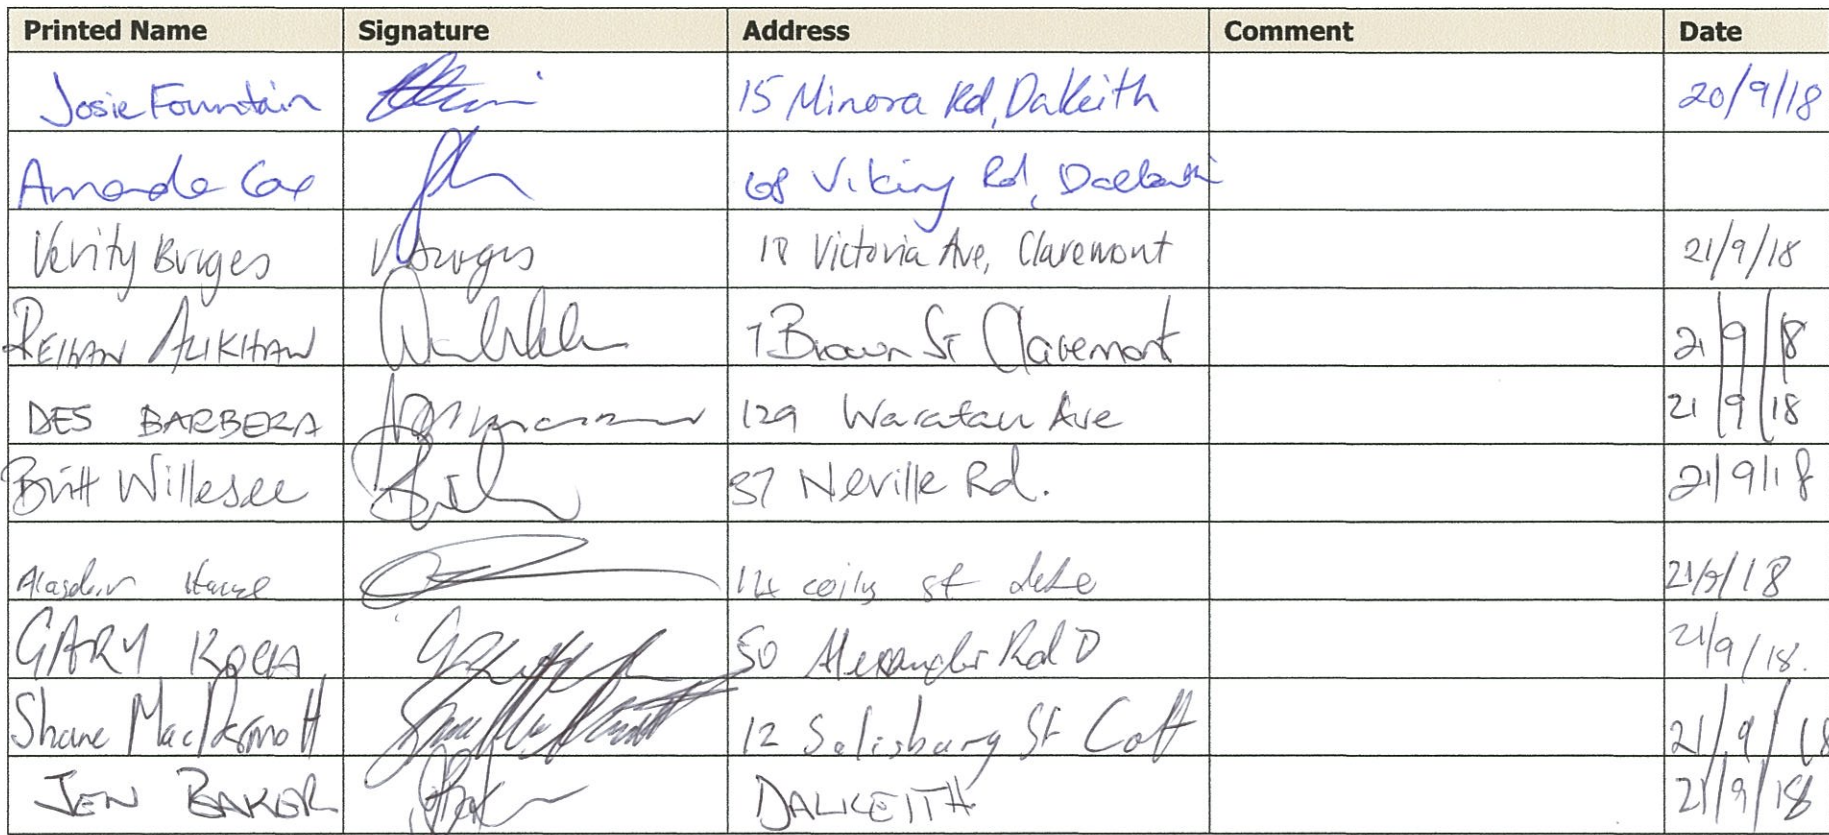 Printed Name Signature Address Comment Date
Josie Fountain 15 Minora Rd, Dalkeith 20/9/18
Amanda Cox 68 Viking Rd, Dalkeith
Verity Burges VBurges 18 Victoria Ave, Claremont 21/9/18
REHAN ALIKHAN 7 Brown St Claremont 21/9/18
DES BARBERA 129 Waratah Ave 21/9/18
Britt Willesee 37 Neville Rd. 21/9/18
Alasdair 14 st 21/9/18
GARY 50 Alexander Rd D 21/9/18.
Shane MacDermott 12 Salisbury St Cott 21/9/18
JEN BAKER DALKEITH 21/9/18